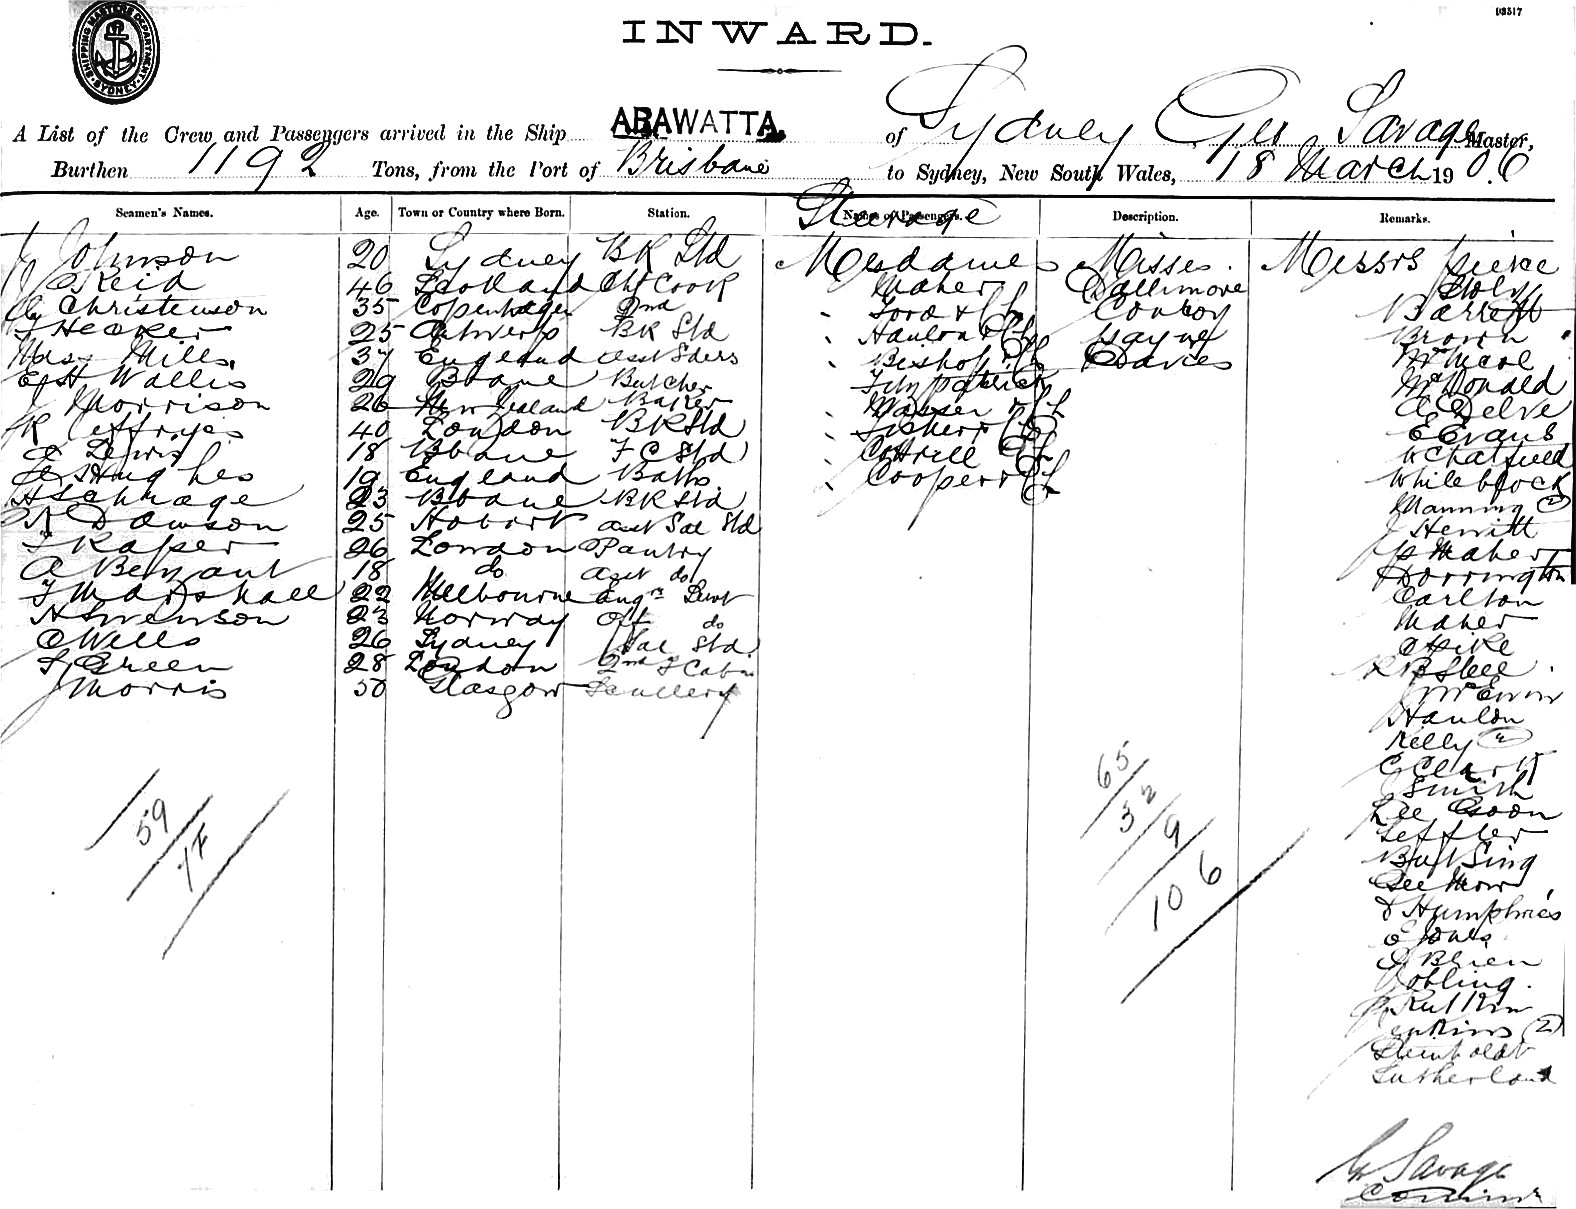 03517
SHIPPING MASTERS DEPARTMENT SYDNEY
INWARD.
A List of the Crew and Passengers arrived in the Ship ARAWATTA. of Sydney Geo Savage Master,
Burthen 1192 Tons, from the Port of Brisbane to Sydney, New South Wales, 18 March 1906
Seamen's Names. Age. Town or Country where Born. Station. Names of Passengers. Description. Remarks.
Steerage
J Johnson 20 Sydney BR Std Mesdames Misses. Messrs Pierce
J Reid 46 Scotland Chf Cook Maher Dallimore
Christenson 35 Copenhagen 2nd Ford & Conroy Barrett
Hecker 25 Antwerp BR Std Hanlon & Wayne Brown
Mrs Mills. 37 England Asst Stdrs Bishop Davies
E H Wallis 29 Bbane Butcher Fitzpatrick McDonald
J Morrison 26 New Zealand Baker & Delve
R Jeffryes 40 London BR Std Fisher & E Evans
Lewis 18 Bbane F C Std Cottrell W Chatfield
Hughes 19 England Baths Cooper & Whileblock
H Schnage 23 Bbane BR Std Manning
Dawson 25 Hobart asst Sal Std J Hewitt
Kaper 26 London Pantry Maher
A Benzant 18 do asst do Dorrington
F Marshall 22 Melbourne Carlton
H Swenson 23 Norway do Maher
C Wells 26 Sydney Sal Std. Pike
F Green 28 London 2nd F Cabin R B Steel
J Morris 50 Glasgow Scullery J McEwin
Hanlon
Kelly
C Clark
J Smith
Lee Goon
Leffler
But Sing
Gee Mow
Humphries
E Jones
O'Brien
Dobling.
Jenkins (2)
Steinholdt
Sutherland
59
65
32
9
106
Geo Savage